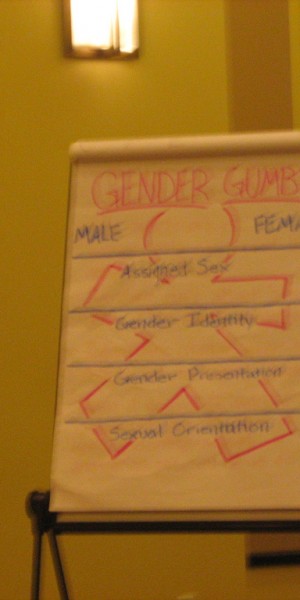 GENDER GUMB
MALE ( ) FEMA
Assigned Sex
Gender Identity
Gender Presentation
Sexual Orientation